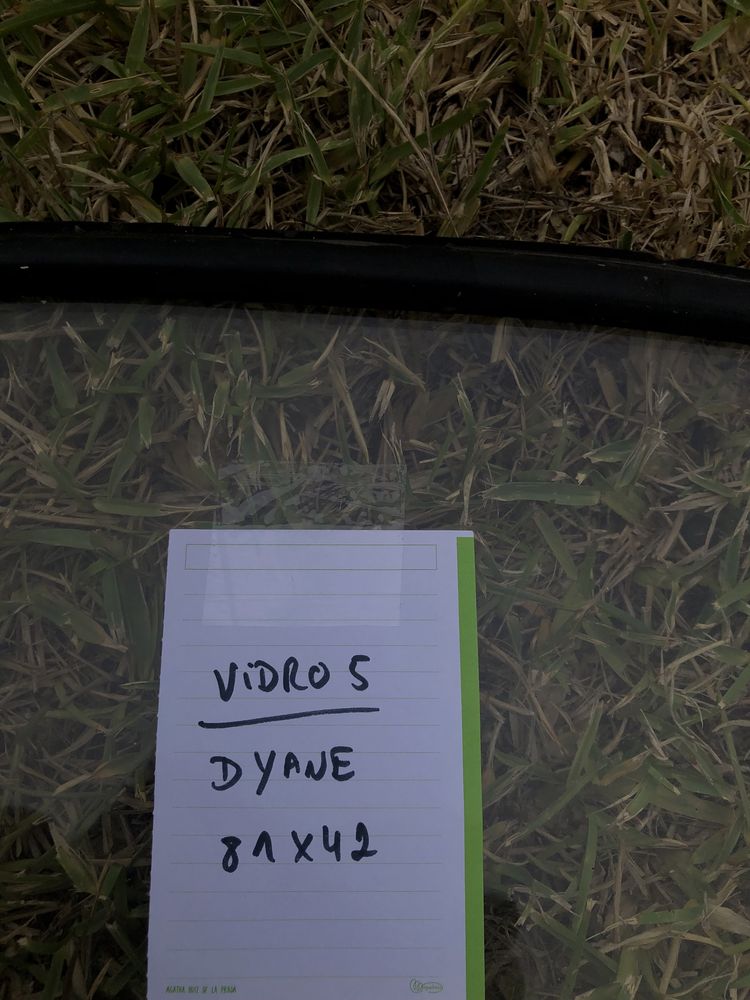 ViDRO 5
DYANE
81 X 42
AGATHA RUIZ DE LA PRADA